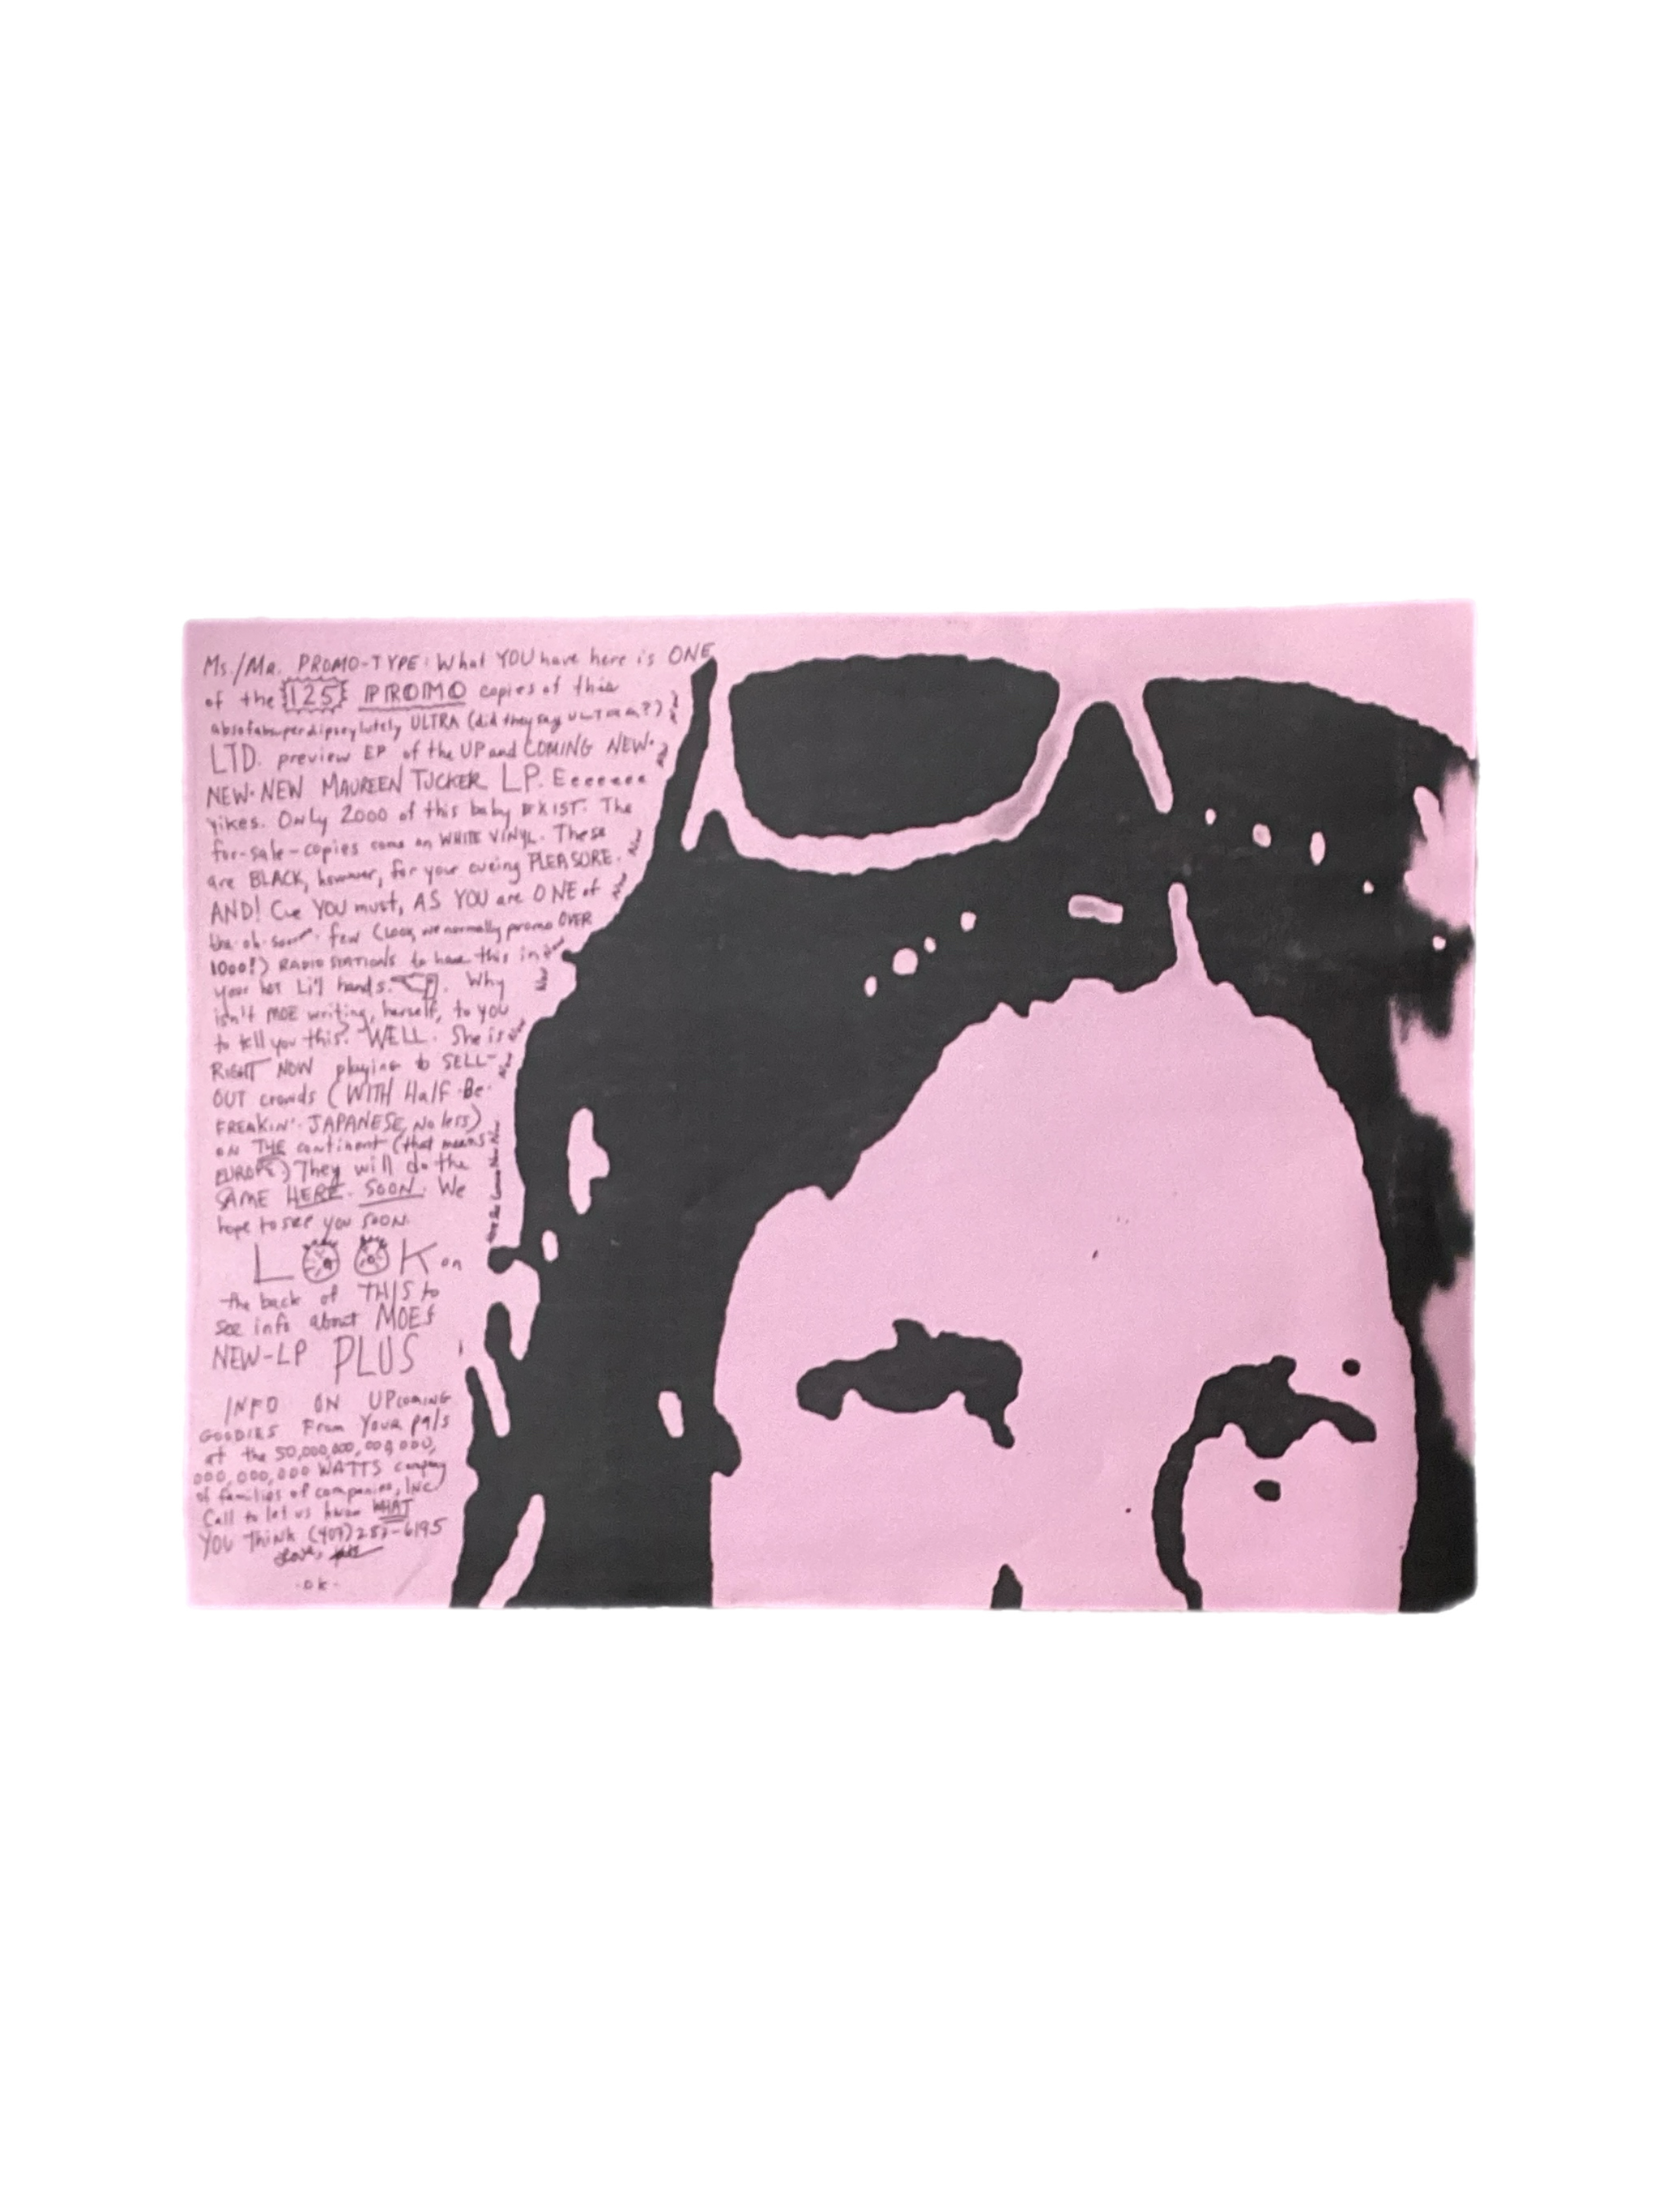 Ms./Mr. PROMO-TYPE: What YOU have here is ONE
of the 125 PROMO copies of this
ULTRA (did they say ULTRA?)
LTD. preview EP of the UP and COMING NEW.
NEW. NEW MAUREEN TUCKER LP. Eeeeeee
yikes. Only 2000 of this baby EXIST. The
for-sale-copies come on WHITE VINYL. These
are BLACK, however, for your cueing PLEASURE.
AND! Cue YOU must, AS YOU are ONE of
the oh. few (Look, we normally promo OVER
1000!) RADIO STATIONS to have this in
your hot Li'l hands. Why
isn't MOE writing, herself, to you
to tell you this? WELL. She is
RIGHT NOW playing to SELL-
OUT crowds (WITH Half-Be-
FREAKIN'-JAPANESE, No less)
ON THE continent (that means
EUROPE.) They will do the
SAME HERE. SOON. We
hope to see you SOON.
LOOK on
the back of THIS to
see info about MOEs
NEW-LP PLUS
INFO ON UPCOMING
GOODIES From Your pals
at the 50,000,000,000,000,
000,000,000 WATTS company
of families of companies, INC.
Call to let us know WHAT
YOU Think (407) 257-6195
Love,
-ok-